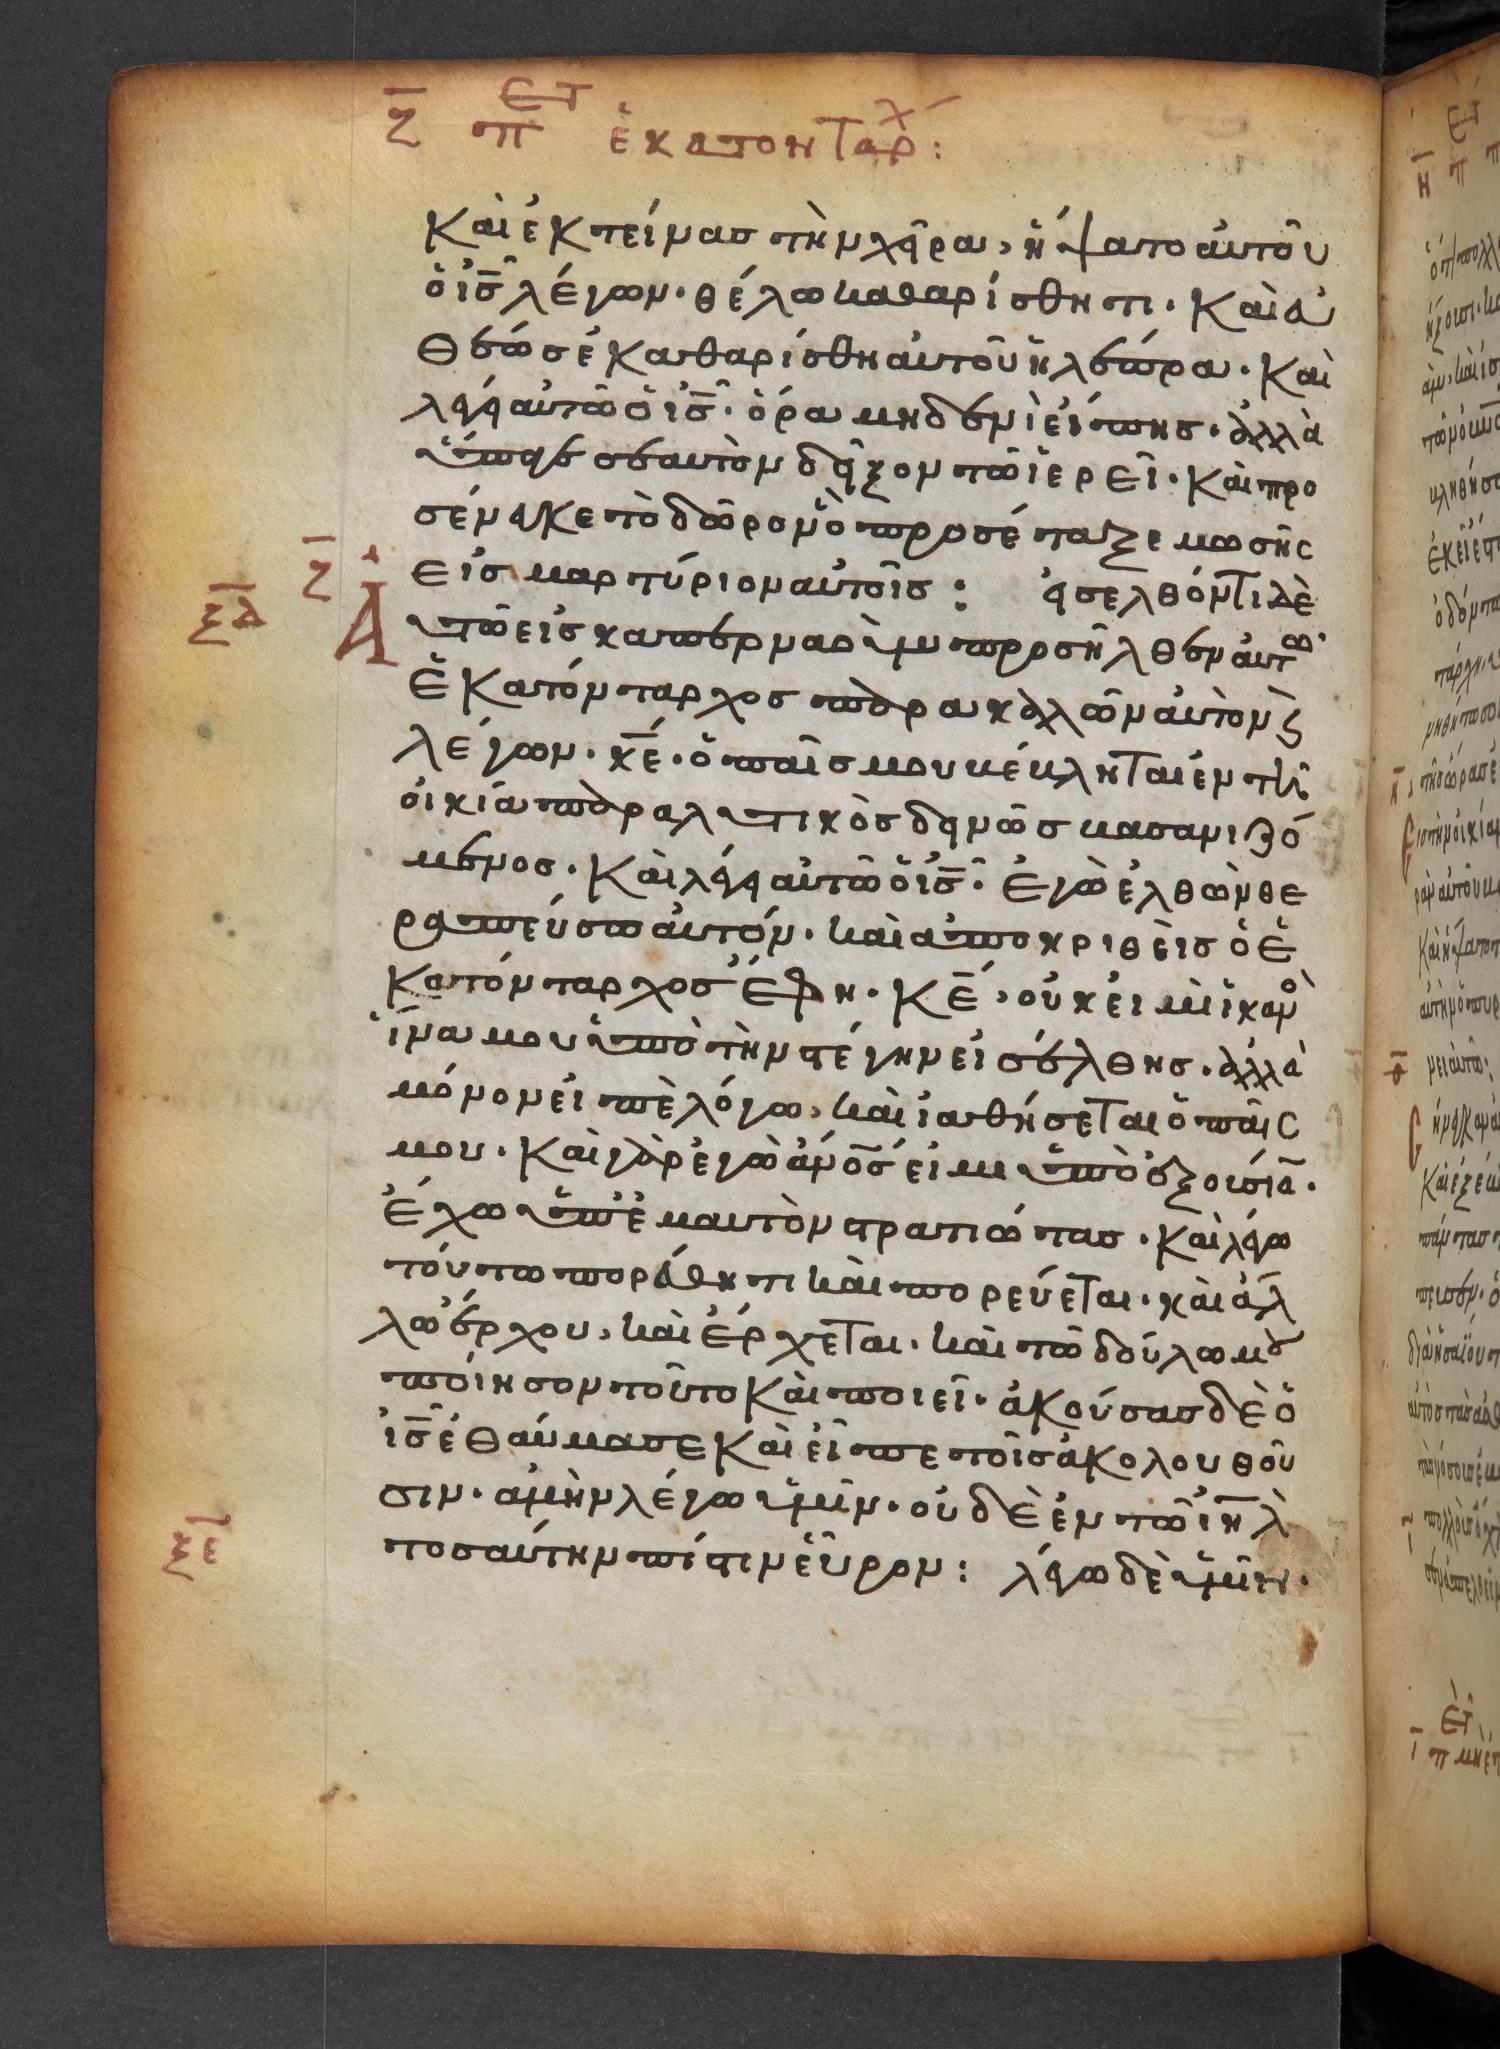 ζ̅ περὶ τ(οῦ) ἑκατοντάρχ(ου):
Καὶ ἐκτείνασ τὴν χεῖρα, ἥψατο αὐτοῦ
ὁ ἰ̅σ̅ λέγων· θέλω καθαρίσθητι· Καὶ εὐ
θέωσ ἐκαθαρίσθη αὐτοῦ ἡ λέπρα· Καὶ
λέγει αὐτῶ ὁ ἰ̅σ̅· ὅρα μηδενὶ εἴπησ· ἀλλὰ
ὕπαγε σεαυτὸν δεῖξον τῶ ἱερεῖ· Καὶ προ
σένεγκε τὸ δῶρον ὃ προσέταξε μωσῆς
εἰσ μαρτύριον αὐτοῖσ: εἰσελθόντι δὲ
ξ̅δ̅ ζ̅ Α
αὐτῶ εἰσ καπερναοὺμ προσῆλθεν αὐτῶ
ἑκατόνταρχοσ παρακαλῶν αὐτὸν ϗ
λέγων· κ̅ε̅· ὁ παῖσ μου κέκληται ἐν τῆ
οἰκία παραλυτικὸσ δεινῶσ βασανιζό
μενοσ· Καὶ λέγει αὐτῶ ὁ ἰ̅σ̅· Ἐγὼ ἐλθὼν θε
ραπεύσω αὐτόν· καὶ ἀποκριθεὶσ ὁ ἑ
κατόνταρχοσ ἔφη· Κ̅ε̅, οὐκ εἰμὶ ἱκανὸ
ἵνα μου ὑπὸ τὴν στέγην εἰσέλθησ· ἀλλὰ
μόνον εἰπὲ λόγω, καὶ ἰαθήσεται ὁ παῖς
μου· Καὶ γὰρ ἐγὼ ἄν̅ο̅σ̅ εἰμι ὑπὸ ἐξουσία̅·
ἔχω ὑπ' ἐμαυτὸν στρατιώτασ· Καὶ λέγω
τούτω πορεύθητι καὶ πορεύεται· καὶ ἄλ
λω ἔρχου, καὶ ἔρχεται· καὶ τῶ δούλω μου
ποίησον τοῦτο Καὶ ποιεῖ· ἀκούσασ δὲ ὁ
ἰ̅σ̅ ἐθαύμασε Καὶ εἶπε τοῖσ ἀκολουθοῦ
σιν· ἀμὴν λέγω ὑμῖν· οὐδὲ ἐν τῶ ἰ̅η̅λ̅
ξ̅ε̅
τοσαύτην πίστιν εὗρον: λέγω δὲ ὑμῖν·